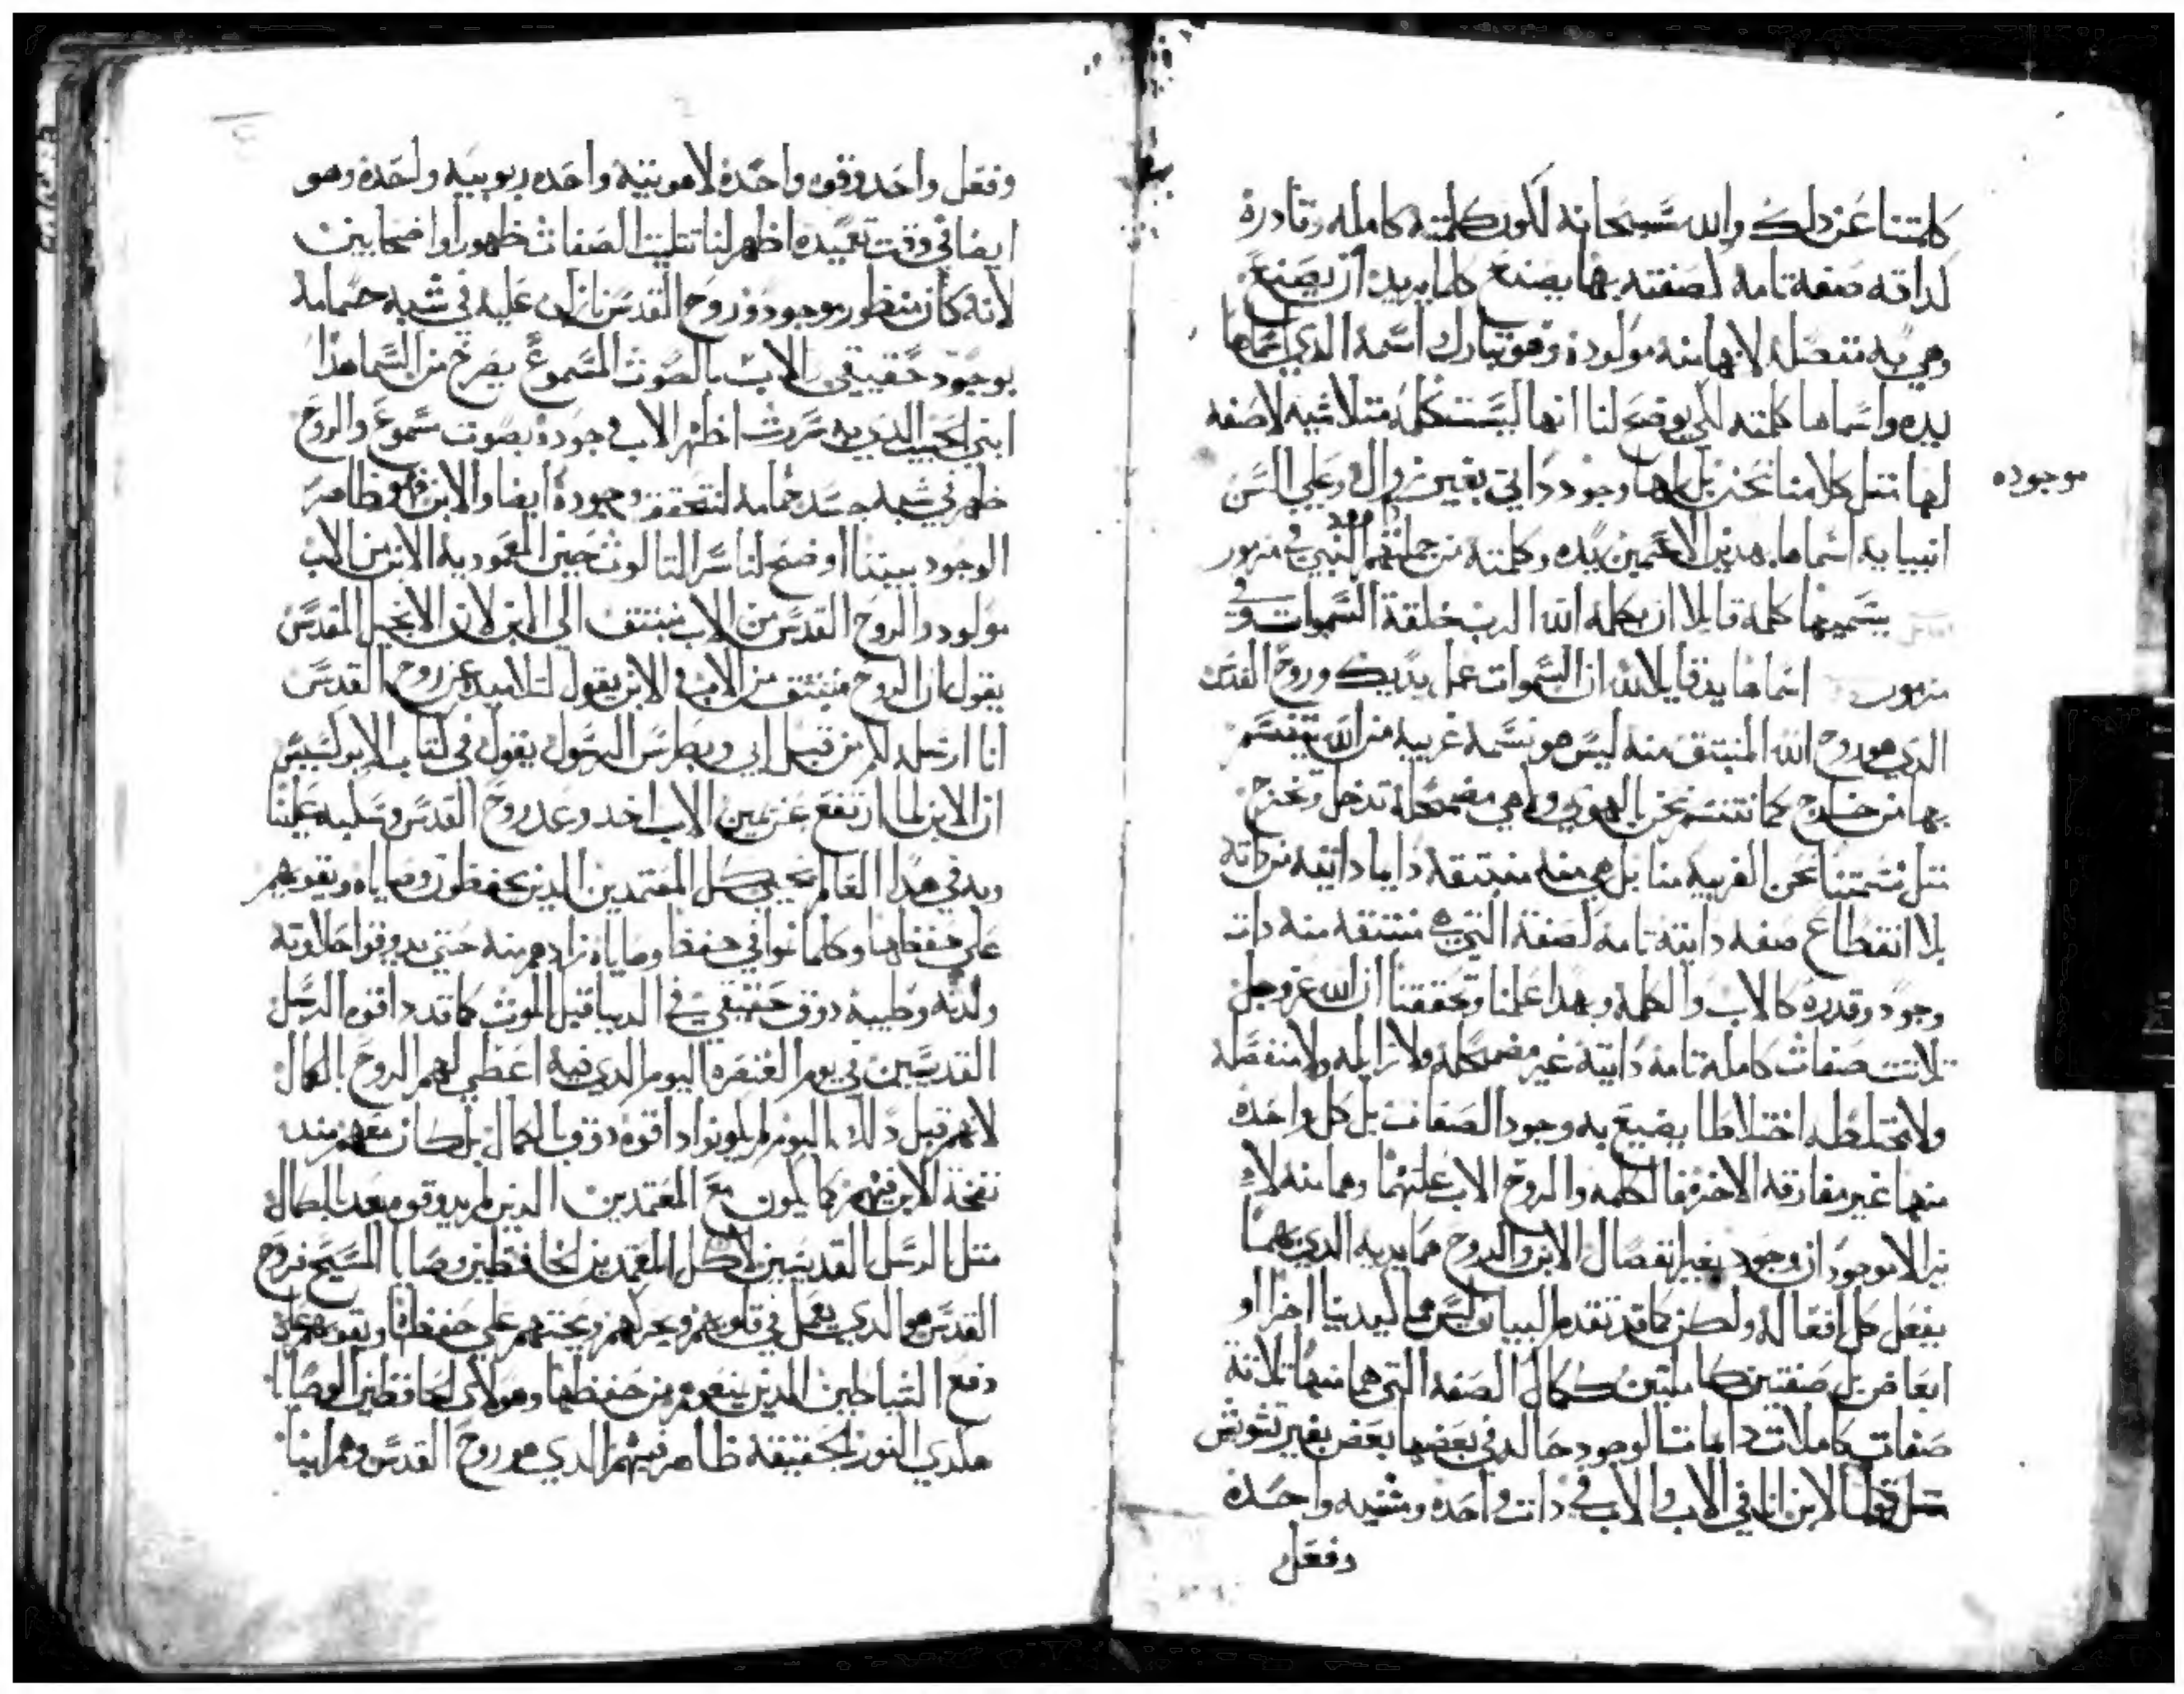 كلمتنا عن دلك والله سبحانه لكون كلمته كامله وقادرة
لداته صفة تامه لصفته بها يصنع كلما يريد ان يصنع
وهي به متصله لانها منه مولودة وهو تبارك اسمه الدي اسماها
يده واسماها كلمته لكي يوضح لنا انها ليست كلمه متلاشيه لا صفه
لها متل كلامنا نحن بل لها وجود داتي بغير زوال وعلي السن
موجوده
انبيايه اسماها بهدين الاسمين يده وكلمته من جملتهم داوود النبي في مزمور
يسميها كلمه قايلا ان بكلمة الله الرب خلقة السموات وفي
مزمور اسماها يد قايلا لله ان السموات عمل يديك وروح القدس
الدي هو روح الله المنبتق منه ليس هو نسمه غريبه من الله يتنسم
بها من خارج كما نتنسم نحن بالهوي ولا هي مضمحله تدخل وتخرج
متل نسمتنا نحن الغريبه منا بل هي منه منبتقه دايما داتيه من داته
بلا انقطاع صفه داتيه تامه لصفة التي هي منبتقه منه دات
وجود وقدره كالاب والكلمه وبهدا علمنا وتحققنا ان الله عز وجل
تلاتت صفات كامله تامه داتيه غير مضمحله ولا زايله ولا منفصله
ولا مختلطه اختلاطا يضيع به وجود الصفات بل كل واحده
منها غير مفارقه الاخره فالكلمه والروح الاب علتهما وهما منه لا
نير الا موجودان وجود بغير انفصال الابن والروح هما يديه الدي بهما
يفعل كل افعاله ولكن كما قد تقدم البيان ليس هما ليدينا اجزا او
ابعاض بل صفتين كاملتين ككمال الصفه التي هما منها تلاتة
صفات كاملات دايمات الوجود حاله في بعضها بعض بغير تشوش
متل قول الابن انا في الاب والاب في دات واحده ومشيه واحده
وفعل
وفعل واحد وقوه واحده لاهوتيه واحده ربوبيه واحده وهو
ايضا في وقت تعميده اظهر لنا تتليت الصفات ظهورا واضحا بين
لانه كان منظور موجود وروح القدس نازل عليه في شبه حمامه
بوجود حقيقي والاب بالصوت المسموع يصرخ من السما هدا
ابني الحبيب الدي به سررت اظهر الاب وجوده بصوت مسموع والروح
ظهر في شبه جسد حمامه لنتحقق وجوده ايضا والابن فهو ظاهر
الوجود بيننا اوضح لنا سر التالوت حين المعموديه الابن من الاب
مولود والروح القدس من الاب منبتق الي الابن لان الانجيل المقدس
يقول ان الروح منبتق من الاب والابن يقول لتلاميده عن روح القدس
انا ارسله لكم من قبل ابي وبطرس الرسول يقول في كتاب الابركسيس
ان الابن لما ارتفع عن يمين الاب اخد وعد روح القدس وسكبه علينا
وبه في هدا العالم يحيي كل المعتمدين الدين يحفظون وصاياه ويقويهم
علي حفظها وكلما نموا في حفظ وصاياه زادهم منه حتي يدوقوا حلاوته
ولدته وطيبه دوق حقيقي في الدنيا قبل الموت كما قد داقوه الرسل
القديسين في يوم العنصره اليوم الدي فيه اعطي لهم الروح بالكمال
لانهم قبل دلك اليوم لم يكونوا داقوه دوق بالكمال بل كان معهم منه
نفخة الابن فيهم كما يكون مع المعتمدين الدين لم يدوقوه بعد بالكمال
متل الرسل القديسين لا كل المعتمدين الحافظين وصايا المسيح فروح
القدس هو الدي يعمل في قلوبهم ويحركهم ويحتهم علي حفظها ويقويهم علي
دفع الشياطين الدين يمنعوهم من حفظها وهولاي الحافظين الوصايا
هكدي النور بالحقيقه ظاهر فيهم الدي هو روح القدس وهم ابنا